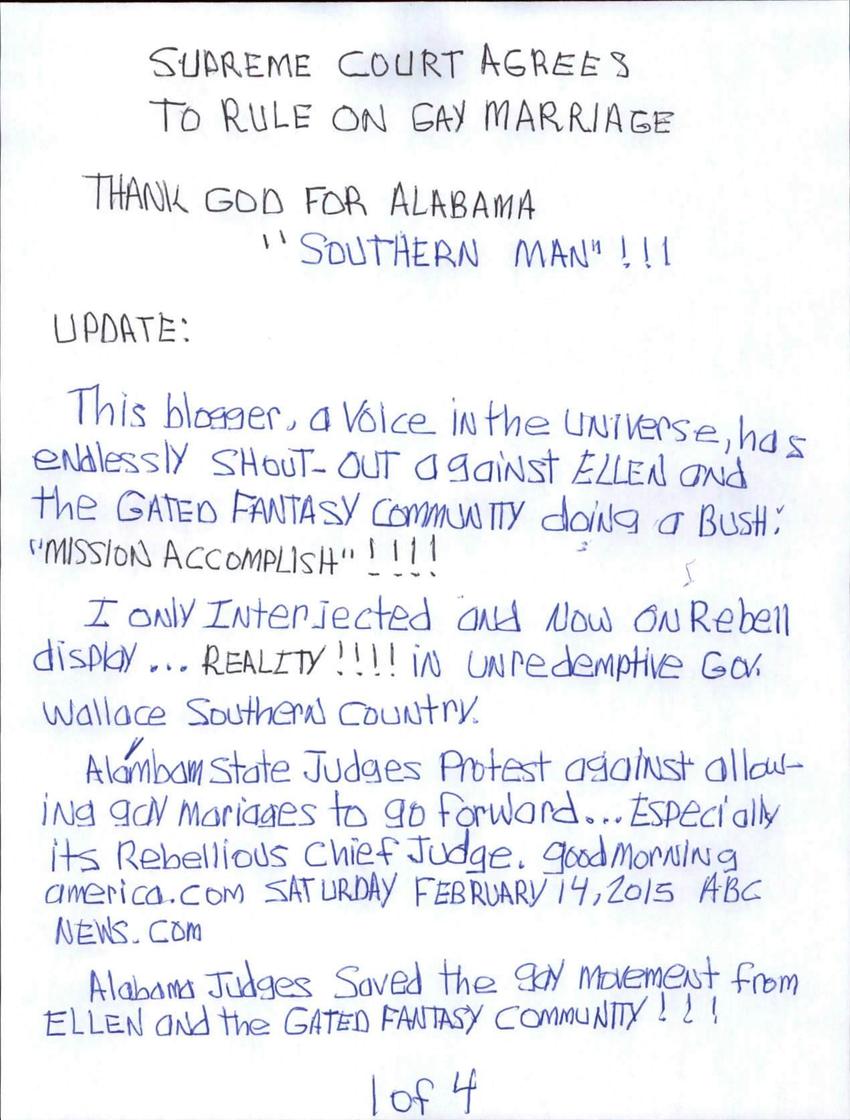 SUPREME COURT AGREES
TO RULE ON GAY MARRIAGE
THANK GOD FOR ALABAMA
"SOUTHERN MAN" !!!
UPDATE:
This blogger, a Voice in the UNiverse, has
eNdlessly SHOUT-OUT against ELLEN and
the GATED FANTASY COMMUNITY doing a BUSH:
"MISSION ACCOMPLISH" !!!!
I only INterjected and Now ON Rebell
display... REALITY!!!! iN unredemptive Gov.
Wallace Southern Country.
Alambam State Judges Protest against allow-
ing gay mariages to go forward... Especially
its Rebellious Chief Judge. goodmorning
america.com SATURDAY FEBRUARY 14, 2015 ABC
NEWS.COM
Alabama Judges Saved the gay movement from
ELLEN and the GATED FANTASY COMMUNITY !!!
1 of 4